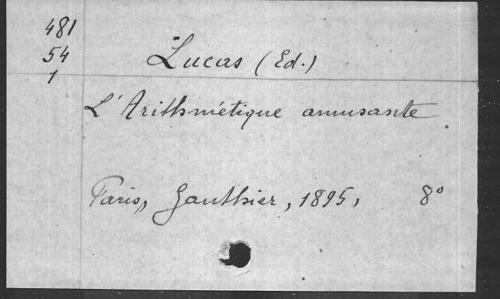 481
54
1
Lucas (Ed.)
L'Arithmétique amusante
Paris, Gauthier, 1895, 8°